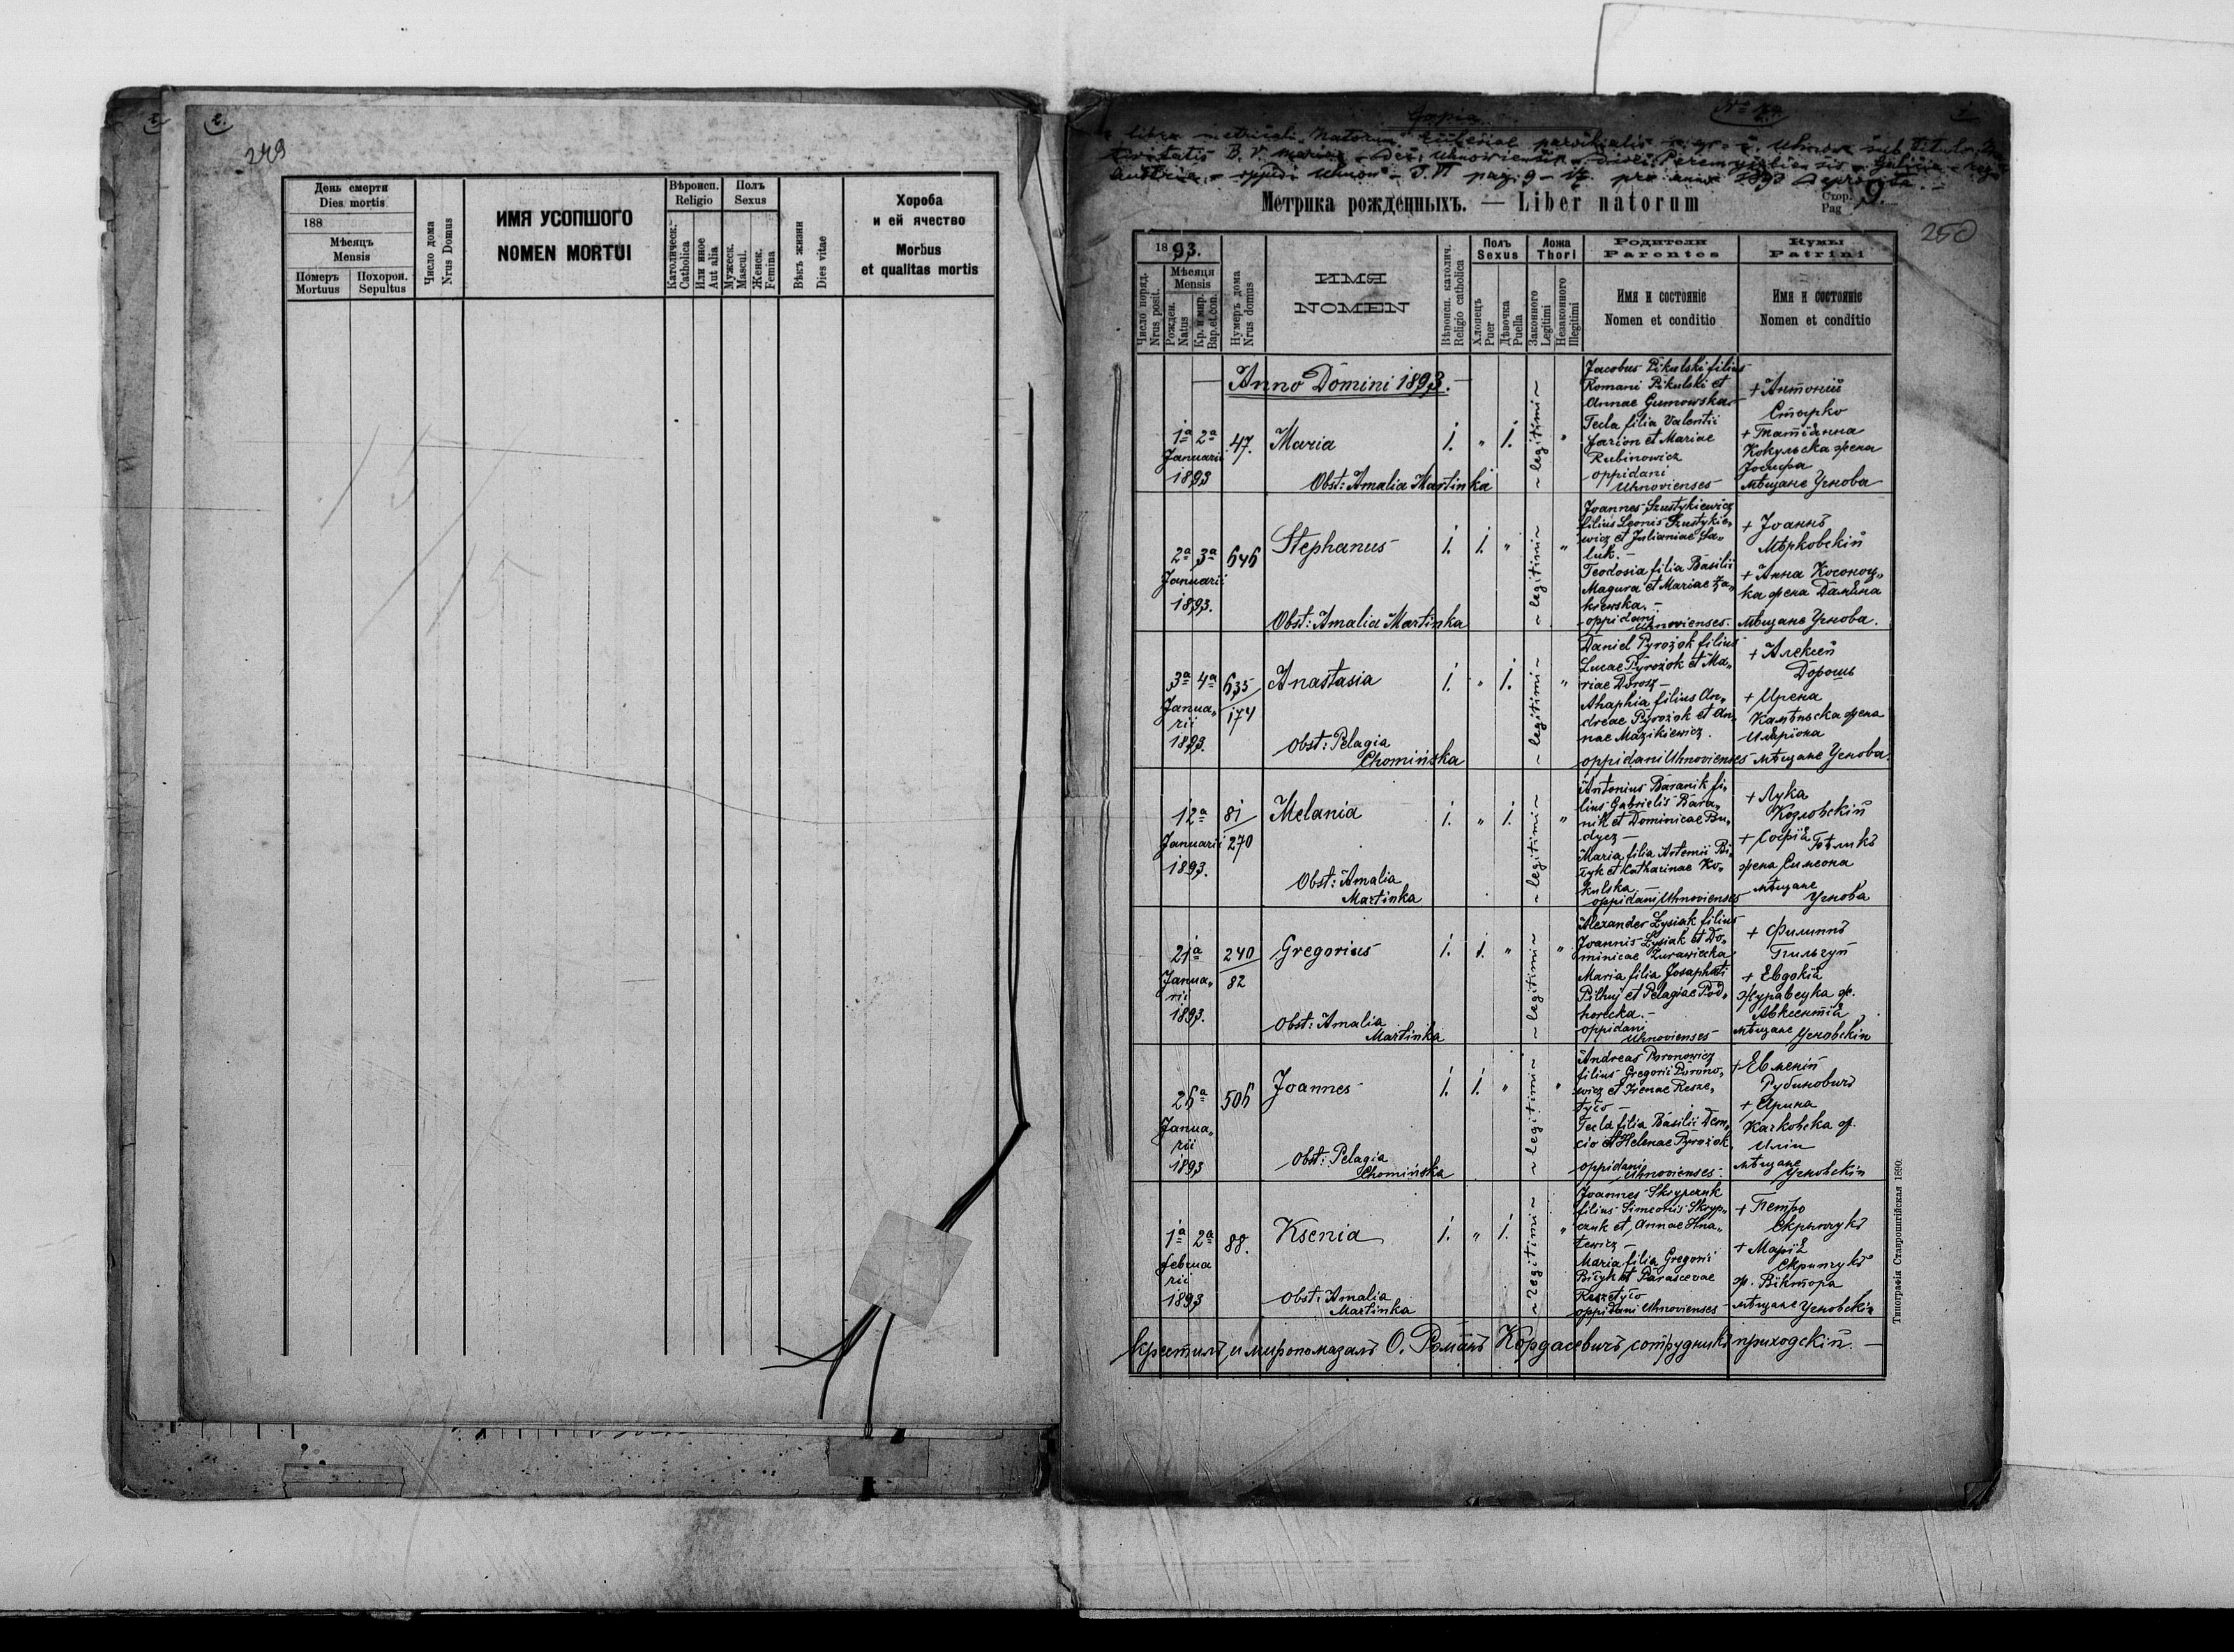 2.
249
День смерти
Dies mortis
188
Мѣсяць
Mensis
Померъ
Mortuus
Похорон.
Sepultus
Число дома
Nrus Domus
ИМЯ УСОПШОГО
NOMEN MORTUI
Вѣроисп.
Religio
Католическ.
Catholica
Или иное
Aut alia
Полъ
Sexus
Мужеск.
Mascul.
Женск.
Femina
Вѣкъ жизни
Dies vitae
Хороба
и ей ячество
Morbus
et qualitas mortis
Copia
libra metricali Natorum parochialis Uhnow sub titulo
B. V. Mariae
Austria Uhnow T. VI pag. 9 pro anno 1893
Метрика рожденныхъ. — Liber natorum
Стор.
Pag 9.
250
1893.
Число поряд.
Nrus posit.
Мѣсяця
Mensis
Рожден.
Natus
Кр. и мир.
Bap.et.con.
Нумеръ дома
Nrus domus
ИМЯ
NOMEN
Вѣроисп. католич.
Religio catholica
Полъ
Sexus
Хлопецъ
Puer
Дѣвочка
Puella
Ложа
Thori
Законного
Legitimi
Незаконного
Illegitimi
Родители
Parentes
Имя и состояніє
Nomen et conditio
Кумы
Patrini
Имя и состояніє
Nomen et conditio
Anno Domini 1893.
1a 2a
Januarii
1893
47.
Maria
Obst: Amalia Martinka
1. " 1.
legitimi
"
Jacobus Pikulski filius
Romani Pikulski et
Annae Gumowska
Tecla filia Valentii
Farion et Mariae
Rubinowicz
oppidani
Uhnovienses
+ Антоній
Старко
+ Татіанна
Кокульска жена
Іосифа
мѣщане Угнова
2a 3a
Januarii
1893.
646
Stephanus
Obst: Amalia Martinka
1. 1. "
legitimi
"
Joannes Szustykiewicz
filius Leonis Szustykie„
wicz et Julianiae Sa„
luk. —
Teodosia filia Basilii
Magura et Mariae Za„
kiewska. —
oppidani
Uhnovienses.
+ Іоаннъ
Мѣрковскій
+ Анна Косоноц„
ка жена Даніила
мѣщане Угнова.
3a 4a
Janua„
rii
1893.
635/174
Anastasia
Obst: Pelagia
Chomińska
1. " 1.
legitimi
"
Daniel Pyrożok filius
Lucae Pyrożok et Ma„
riae Dorosz —
Ahaphia filius An„
dreae Pyrożok et An„
nae Mazikiewicz.
oppidani Uhnovienses
+ Алексей
Дорошъ
+ Ирена
Камѣньска жена
Иляріона
мѣщане Угнова.
12a
Januarii
1893.
81/270
Melania
Obst: Amalia
Martinka
1. " 1.
legitimi
"
Antonius Baranik fi„
lius Gabrielis Bara„
nik et Dominicae Bu„
dycz —
Maria filia Artemii Bi„
łyk et Katharinae Ko„
kulska —
oppidani Uhnovienses
+ Лука
Козловскій
+ Софія Бѣликъ
жена Симеона
мѣщане
Угнова
21a
Janua„
rii
1893.
240/82
Gregorius
Obst: Amalia
Martinka
1. 1. "
legitimi
"
Alexander Łysiak filius
Joannis Łysiak et Do„
minicae Żurawiecka
Maria filia Josaphati
Pilhuj et Pelagiae Pod„
horecka. —
oppidani
Uhnovienses
+ Филиппъ
Пильгуй
+ Евдокія
Журавецка ж.
Авксентія
мѣщане Угновскіи
26a
Janua„
rii
1893
506
Joannes
Obst: Pelagia
Chomińska
1. 1. "
legitimi
"
Andreas Woronowicz
filius Gregorii Worono„
wicz et Irenae Resze„
tyło —
Tecla filia Basilii Dem„
cio et Helenae Pyrożok
oppidani
Uhnovienses.
+ Евменій
Рубиновичъ
+ Ирина
Качковска ж.
Иліи
мѣщане
Угновскіи
1a 2a
Februa
rii
1893
88.
Ksenia
Obst: Amalia
Martinka
1. " 1.
legitimi
"
Joannes Skrypczuk
filius Simeonis Skryp„
czuk et Annae Hna„
tewicz —
Maria filia Gregorii
Biłyk et Parascevae
Reszetyło
oppidani Uhnovienses
+ Петро
Скрыпчукъ
+ Марія
Скрипчукъ
ж. Віктора
мѣщане Угновскіи
Крестилъ и миропомазалъ О. Романъ Кордасевичъ сотрудникъ приходскій. —
Типографія Ставропигійская 1890.